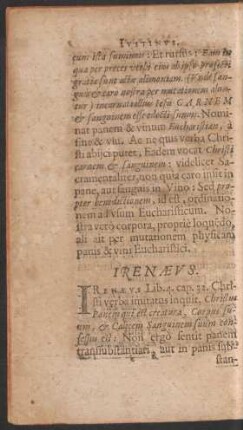 IVSTINVS.
cum ista sumimus: Et rursus: Eam in
qua per preces verbi eius ab ipso profecti,
gratiæ sunt actæ alimoniam (Vnde san-
guis & caro nostra per mutationem alun-
tur) incarnati illius Iesu CARNEM
& sanguinem esse edocti sumus. Nomi-
nat panem & vinum Eucharistian, à
sito & viu. Ac ne quis verba Chri-
sti abijci putet, Eadem vocat Christi
carnem & sanguinem: videlicet Sa-
cramentaliter, non quia caro insit in
pane, aut sanguis in Vino: Sed pro-
pter benedictionem, id est, ordinatio-
nem ad vsum Eucharisticum. No-
stra verò corpora, propriè loquedo,
ali ait per mutationem physicam
panis & vini Eucharistici.
IRENÆVS.
IRENÆVS Lib. 4. cap. 32. Chri-
sti verba imitatus inquit, Christus
Panem qui est creatura, Corpus su-
um, & Calicem Sanguinem suum con-
fessus est: Non ergo sentit panem
transubstantiari, aut in panis sub-
stan-